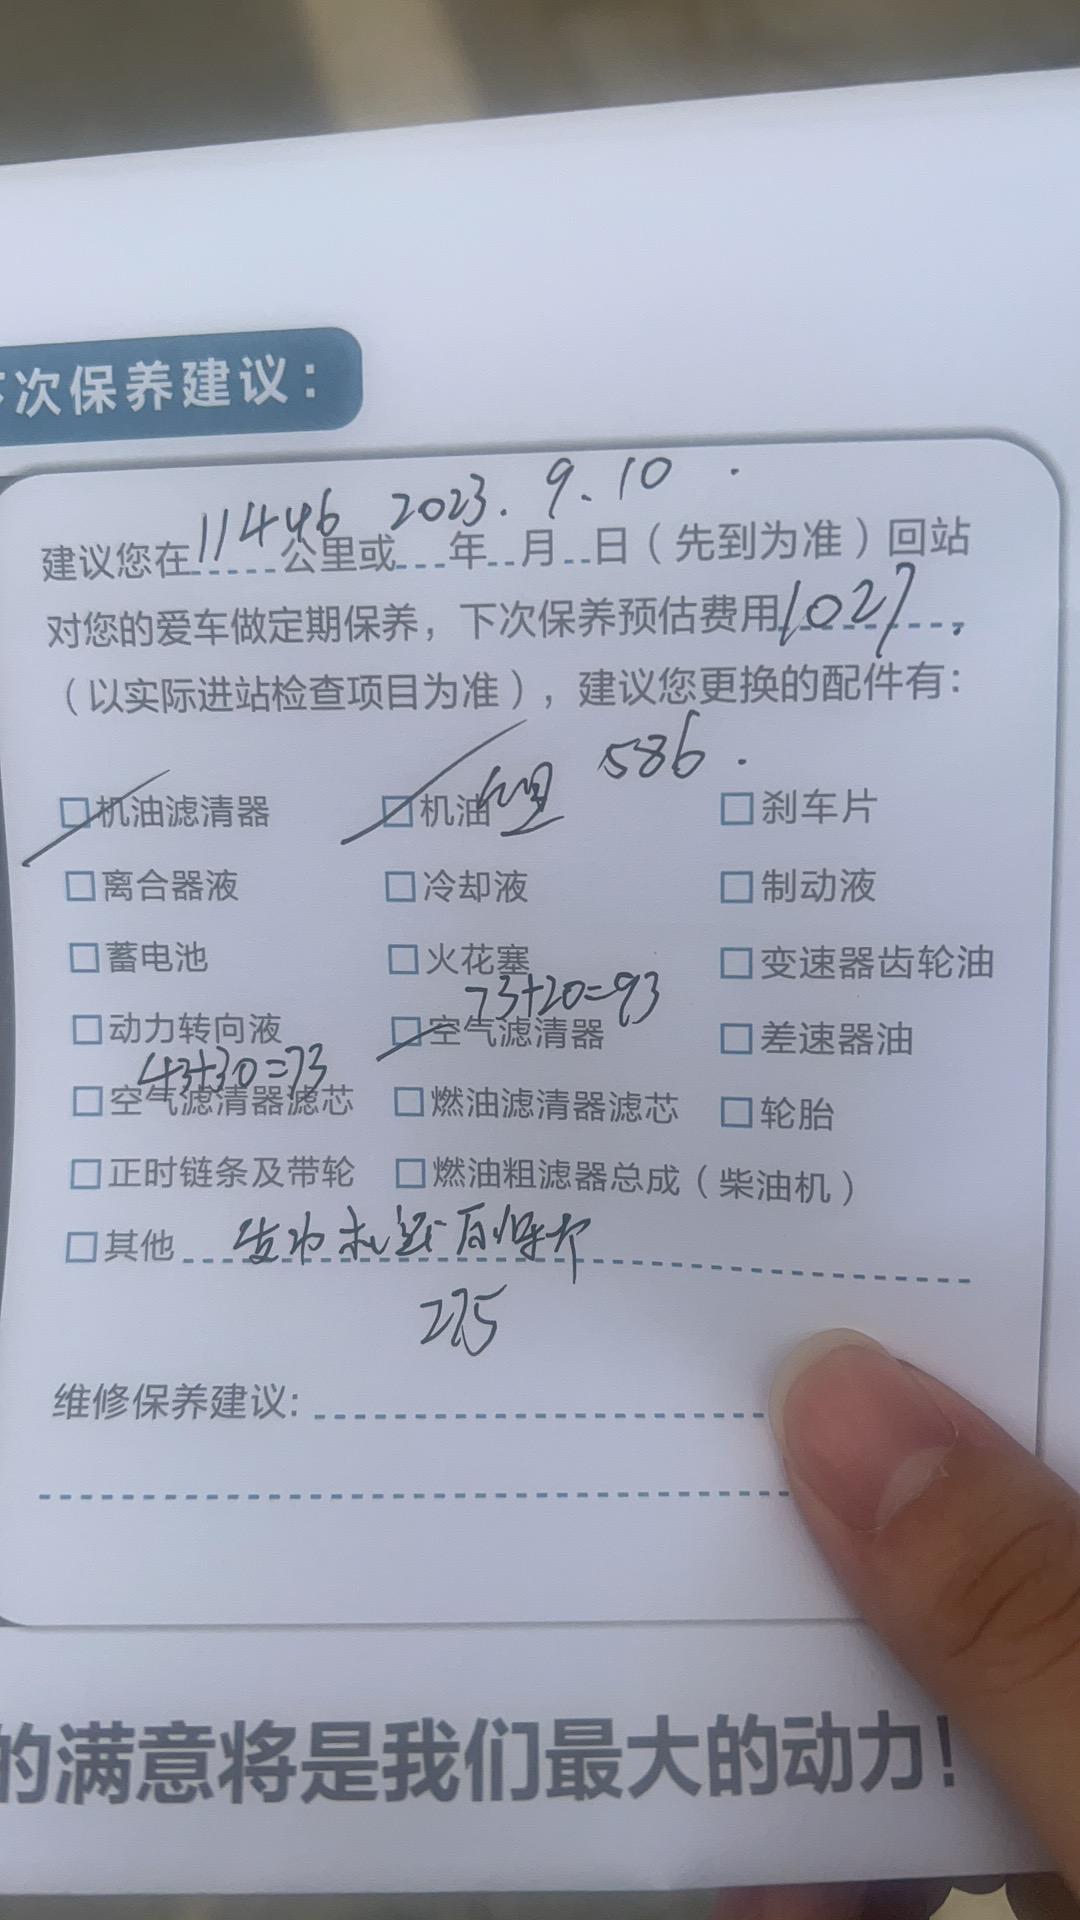 次保养建议：
11446 2023. 9. 10
建议您在公里或年月日（先到为准）回站
对您的爱车做定期保养，下次保养预估费用1027，
（以实际进站检查项目为准），建议您更换的配件有：
586.
机油滤清器 机油 刹车片
离合器液 冷却液 制动液
蓄电池 火花塞 变速器齿轮油
73+20=93
动力转向液 空气滤清器 差速器油
43+30=73
空气滤清器滤芯 燃油滤清器滤芯 轮胎
正时链条及带轮 燃油粗滤器总成（柴油机）
其他
275
维修保养建议：
的满意将是我们最大的动力！